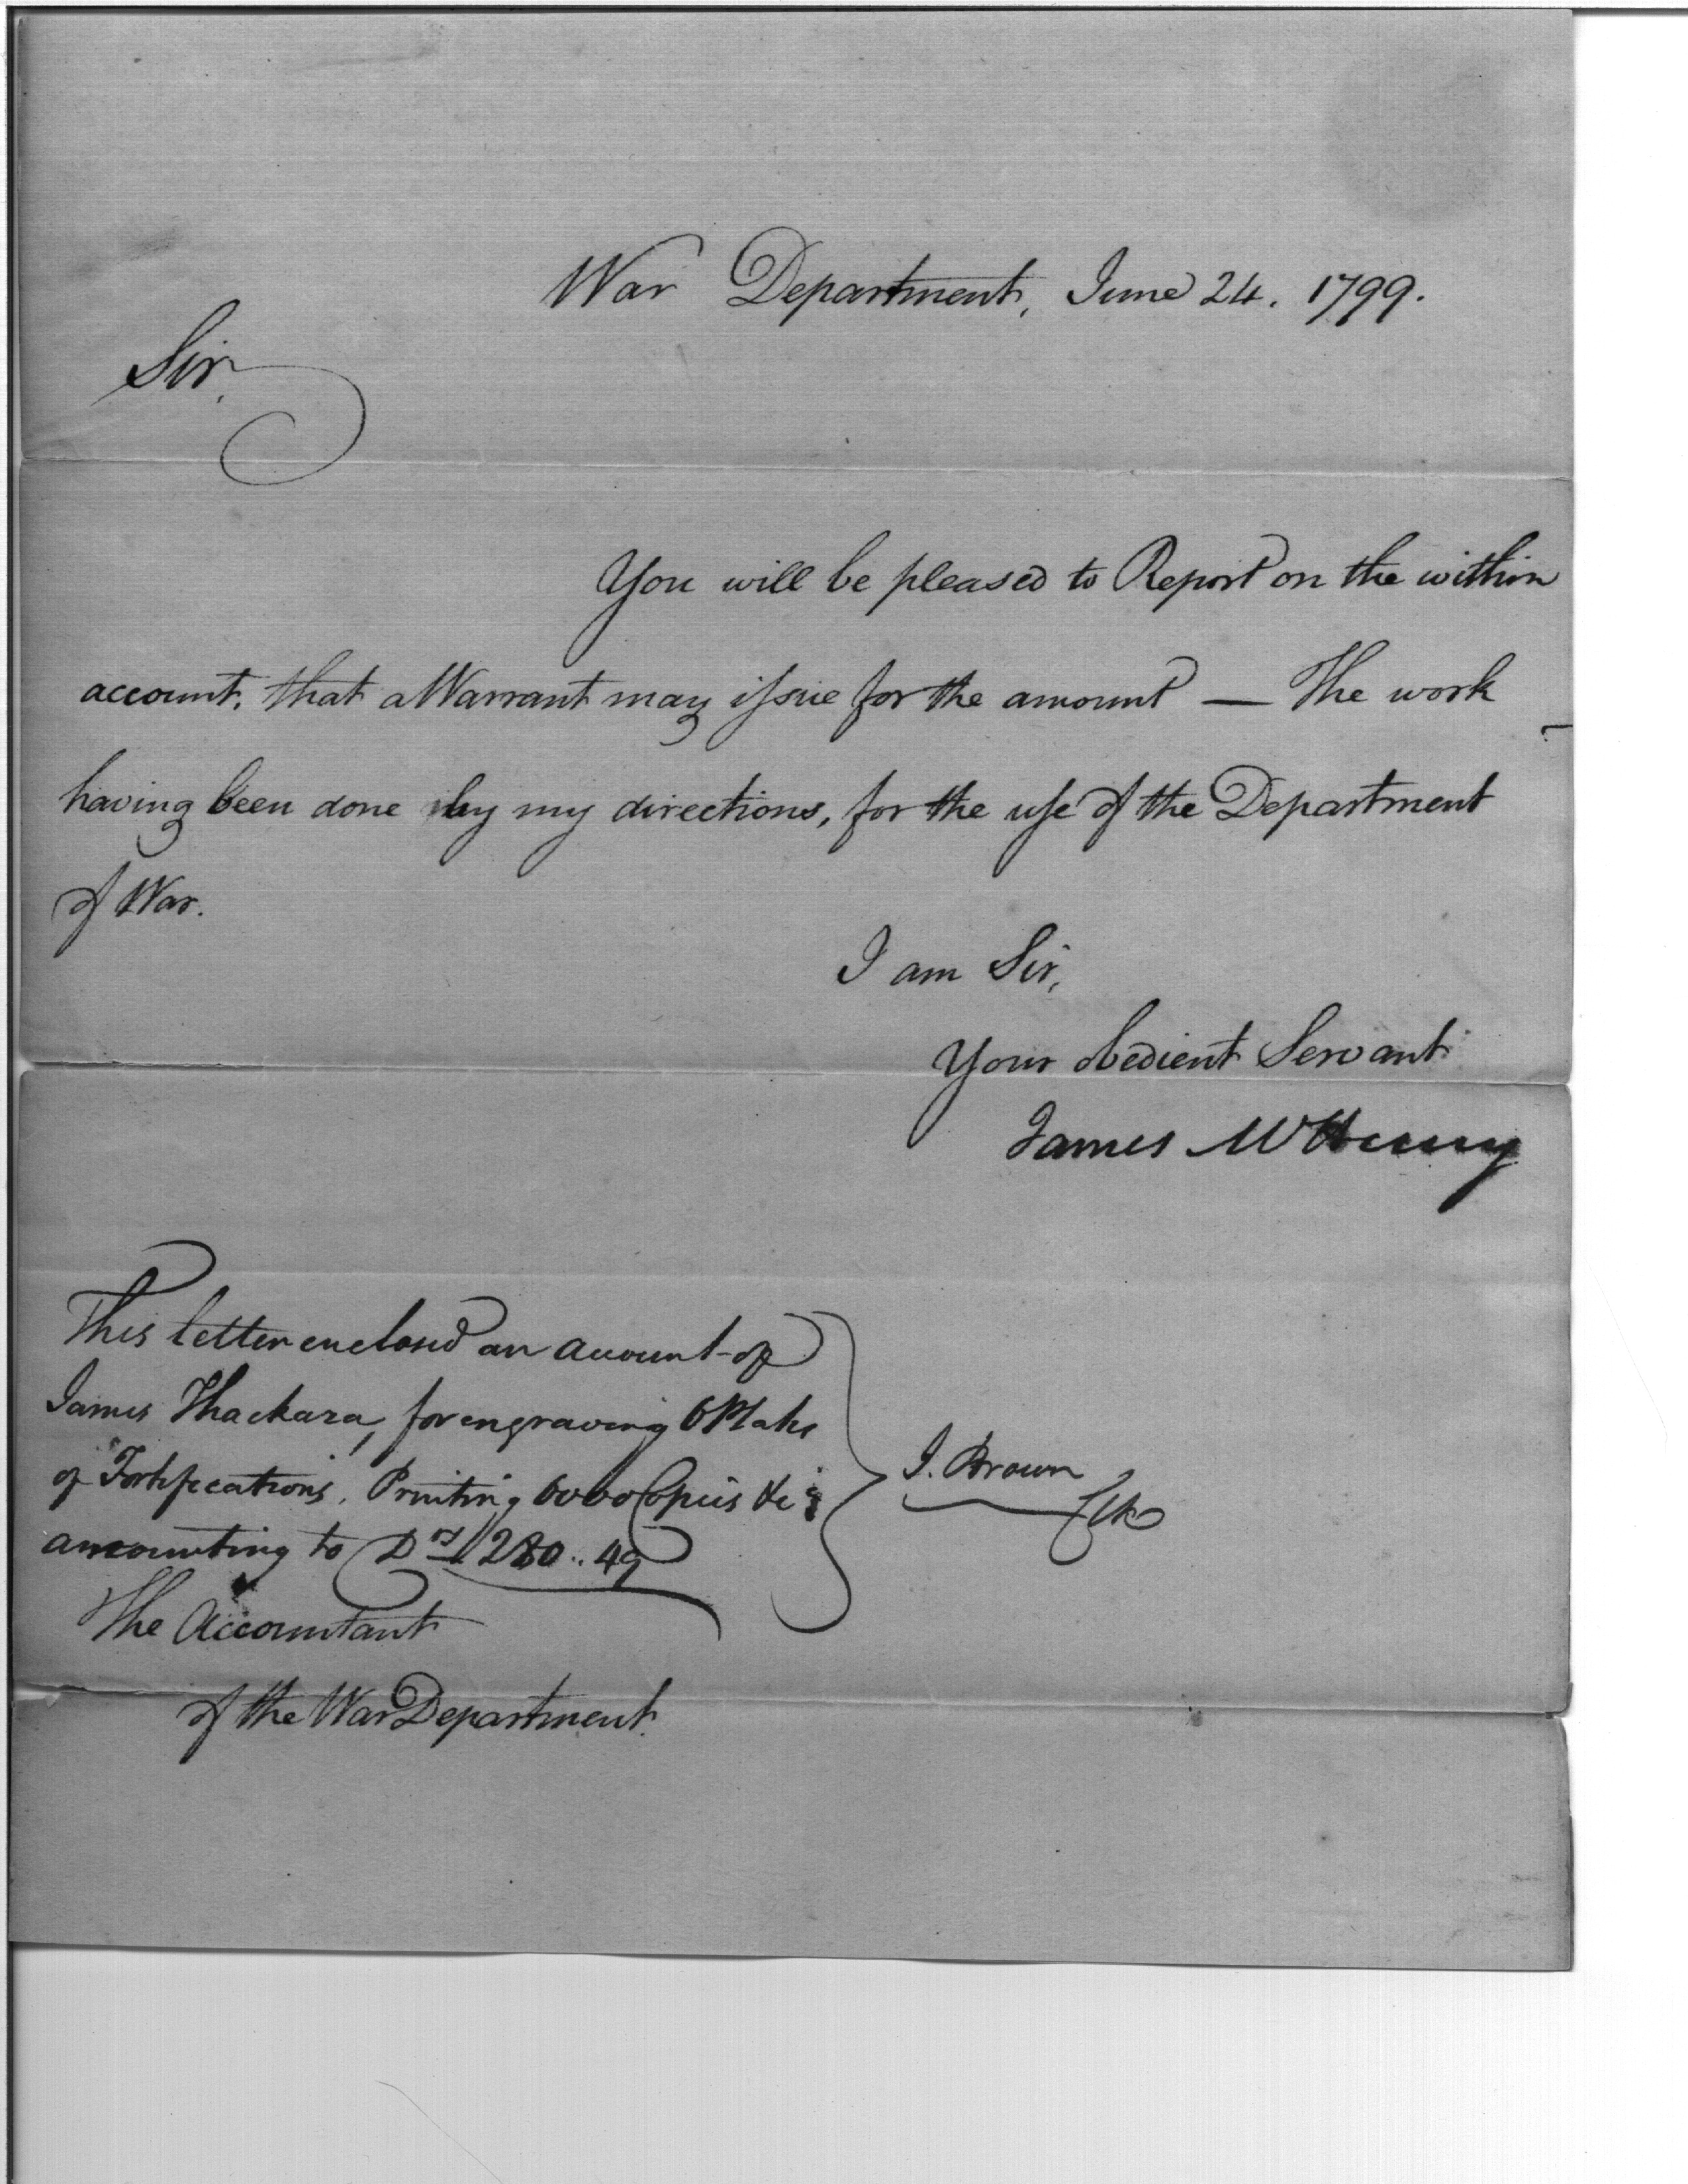 War Department, June 24. 1799.
Sir,
You will be pleased to Report on the within
account, that a Warrant may issue for the amount — The work
having been done by my directions, for the use of the Department
of War.
I am Sir,
Your obedient Servant
James McHenry
This letter enclosed an account of
James Thackara, for engraving 6 Plates
of Fortifications, Printing 6000 Copies &c
amounting to Drs 280..49
J. Brown
Clk
The Accountant
of the War Department.